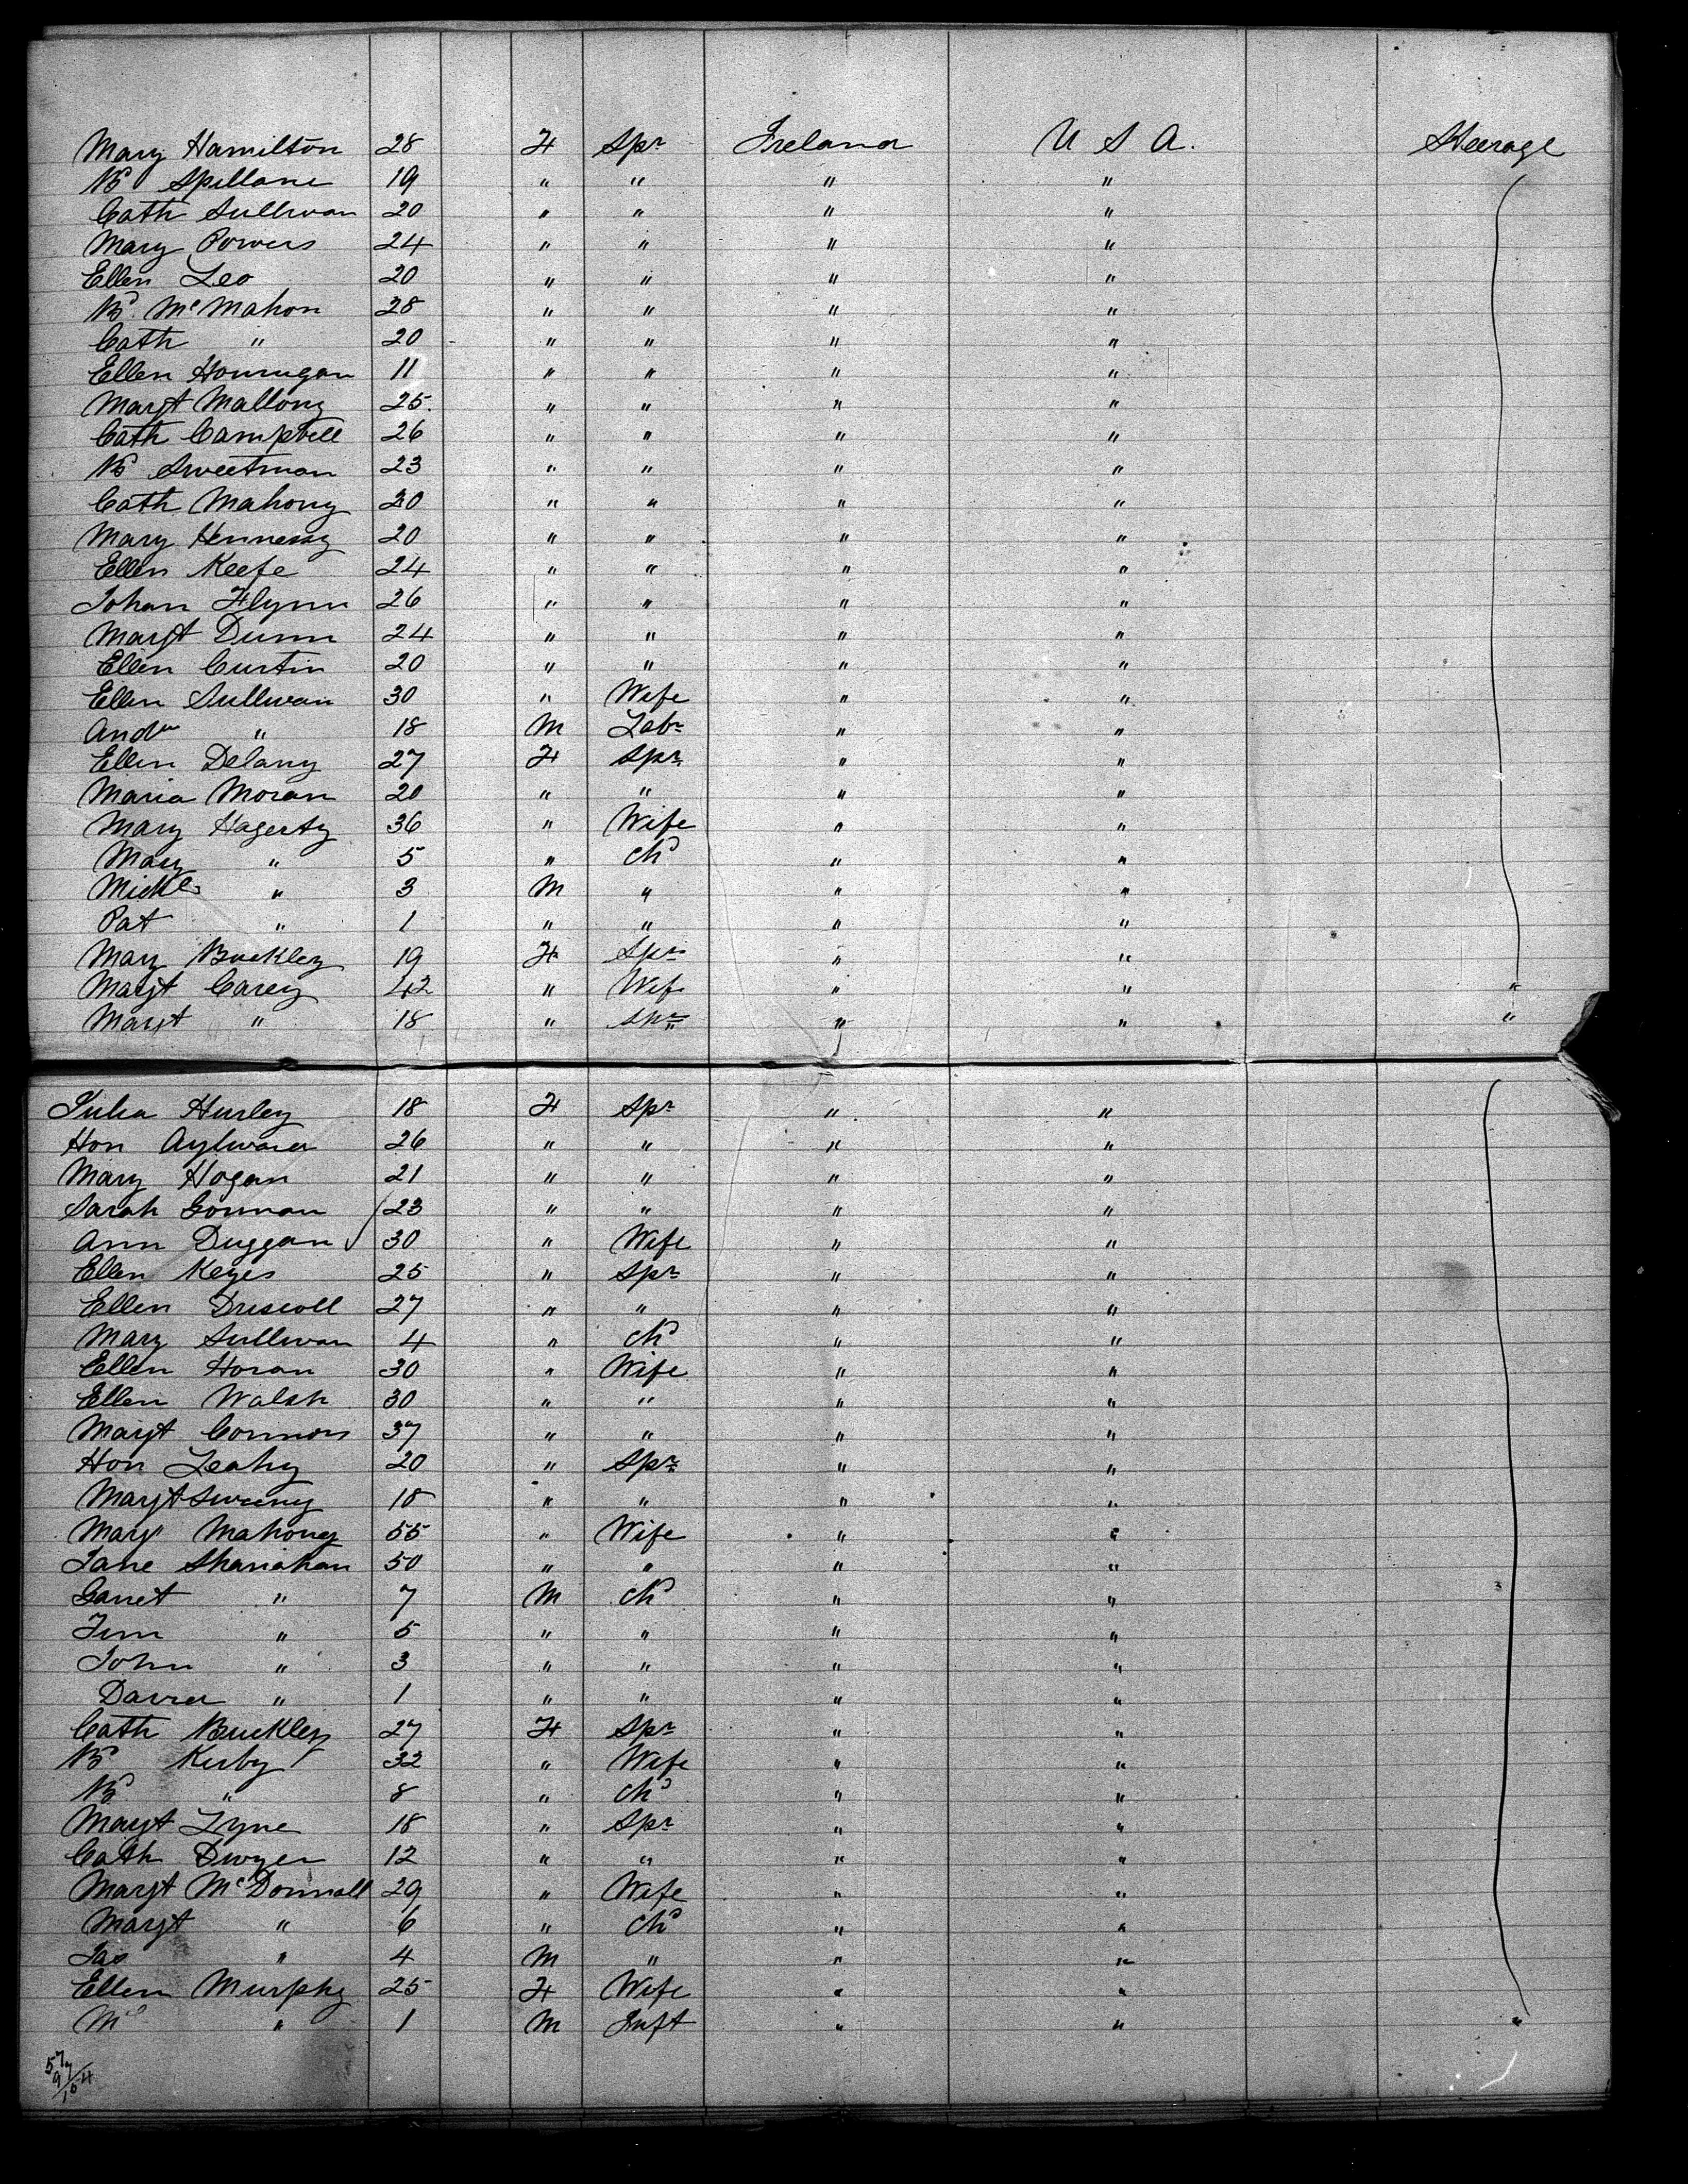 Mary Hamilton 28 F Spr Ireland U S A. Steerage
B Spillane 19 " " " "
Cath Sullivan 20 " " " "
Mary Powers 24 " " " "
Ellen Leo 20 " " " "
B. McMahon 28 " " " "
Cath " 20 " " " "
Ellen Hourugan 11 " " " "
Margt Mallony 25. " " " "
Cath Campbell 26 " " " "
B Sweetman 23 " " " "
Cath Mahony 20 " " " "
Mary Hennessy 20 " " " "
Ellen Keefe 24 " " " "
Johan Flynn 26 " " " "
Margt Dunn 24 " " " "
Ellen Curtin 20 " " " "
Ellen Sullivan 30 " Wife " "
Andw " 18 M Labr " "
Ellen Delany 27 F Spr " "
Maria Moran 20 " " " "
Mary Hagerty 36 " Wife " "
Mary " 5 " Chd " "
Michl " 3 M " " "
Pat " 1 " " " "
Mary Buckley 19 F Spr " "
Margt Carey 42 " Wife " " "
Margt " 18 " Spr " " "
Julia Hurley 18 F Spr " "
Hon Aylward 26 " " " "
Mary Hogan 21 " " " "
Sarah Gorman 23 " " " "
Ann Duggan 30 " Wife " "
Ellen Keyes 25 " Spr " "
Ellen Driscoll 27 " " " "
Mary Sullivan 4 " Chd " "
Ellen Horan 30 " Wife " "
Ellen Walsh 30 " " " "
Margt Connors 37 " " " "
Hon Leahy 20 " Spr " "
Margt Sweeny 18 " " " "
Mary Mahoney 55 " Wife " "
Jane Shanahan 50 " " " "
Garret " 7 M Chd " "
Jim " 5 " " " "
John " 3 " " " "
David " 1 " " " "
Cath Buckley 27 F Spr " "
B Kerby 32 " Wife " "
B " 8 " Chd " "
Margt Lyne 18 " Spr " "
Cath Dwyer 12 " " " "
Margt McDonnall 29 " Wife " "
Margt " 6 " Chd " "
Jas " 4 M " " "
Ellen Murphy 25 F Wife " "
Ml " 1 M Inft " " "
57